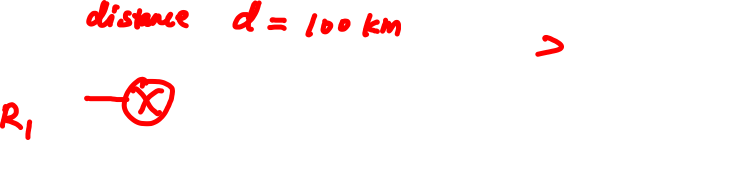 distance d = 100 km
>
X
R1